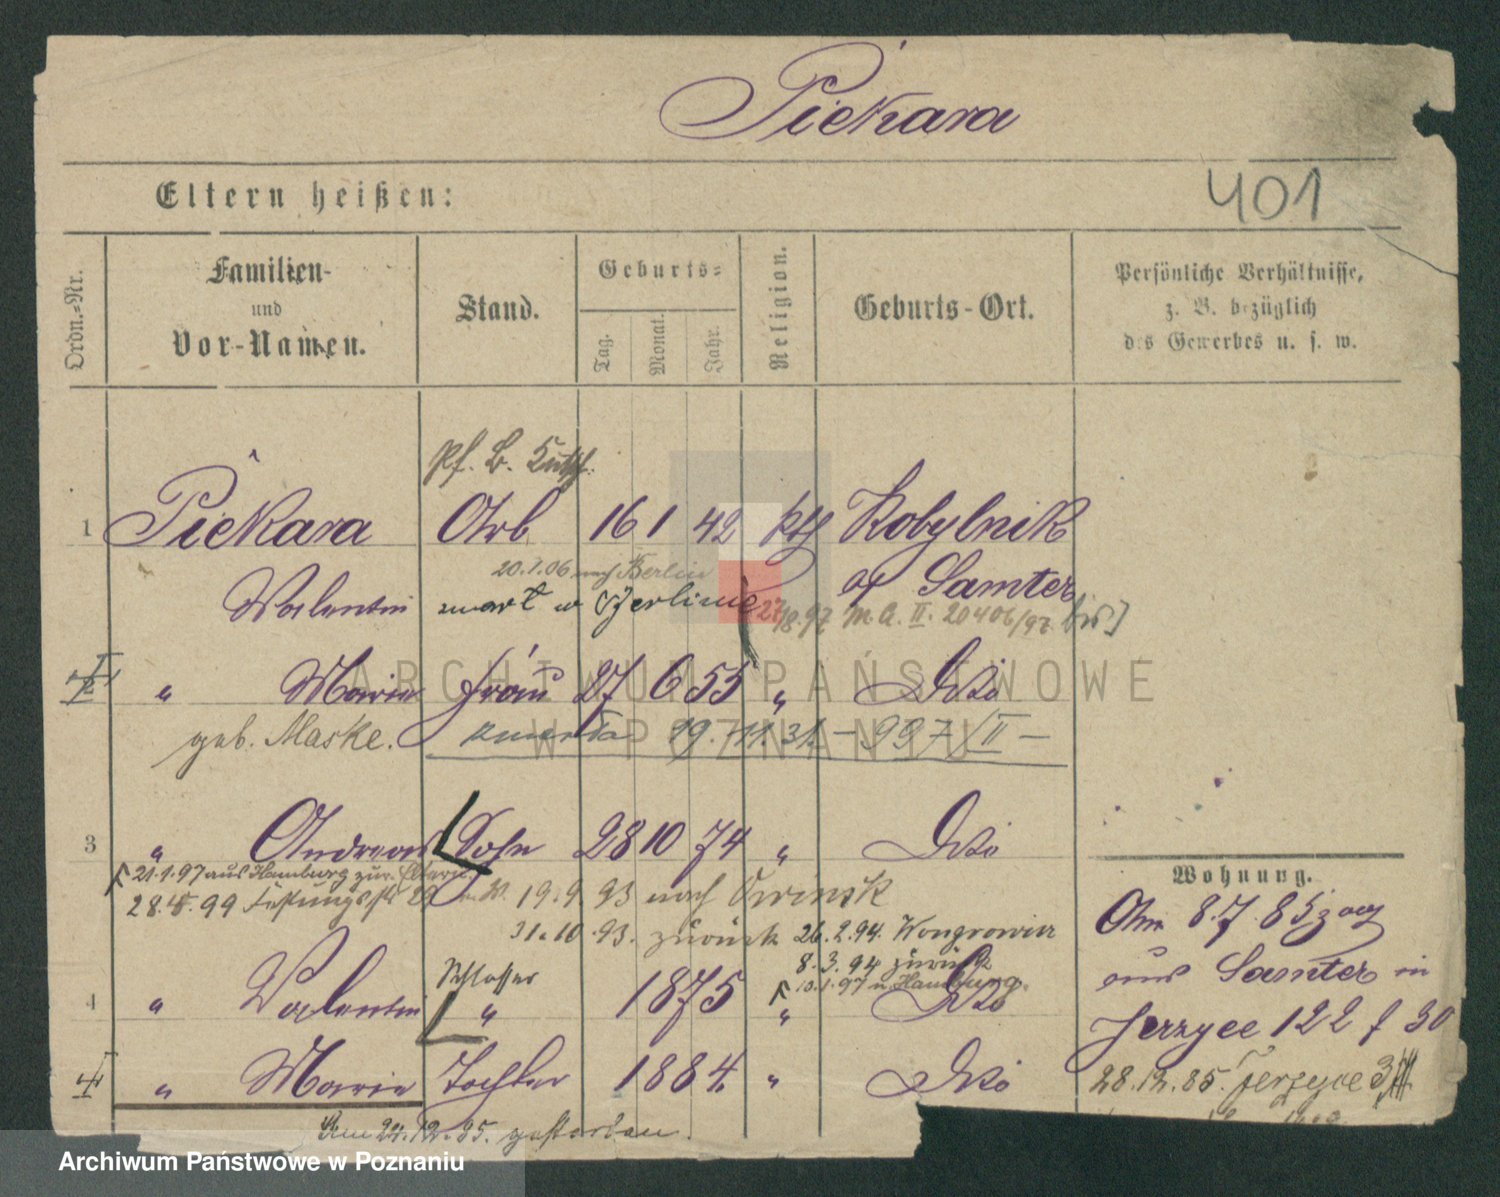 Piekara
401
Eltern heißen:
Ordn.-Nr.
Familien-
und
Vor-Namen.
Stand.
Geburts-
Tag.
Monat.
Jahr.
Religion.
Geburts-Ort.
Persönliche Verhältnisse,
z. B. bezüglich
des Gewerbes u. s. w.
1 Piekara Arb 16 1 42 kth Kobylnik
20.1.06 nach Berlin
Valentin zmarł w Berlinie
Samter
27/8.97 M.A. II. 20406/97.
" Marie Frau 27 6 55 " Dto
geb. Maske. zmarła 19.-11.31.-997/II-
3 " Andreas Sohn 28 10 74 " Dto
21.1.97 aus Hamburg zur. Eltern
19.9.93 nach
31.10.93. zurück 26.2.94. Wongrowitz
8.3.94 zurück
Schlosser
10.1.97 n Hamburg.
4 " Valentin " 1875 " Dto
" Marie Tochter 1884. " Dto
Am 24.12.85. gestorben.
Wohnung.
Am 8.7.85 zog
aus Samter in
Jerzyce 122 f 30
28.12.85. Jerzyce
ARCHIWUM PAŃSTWOWE
W POZNANIU
Archiwum Państwowe w Poznaniu